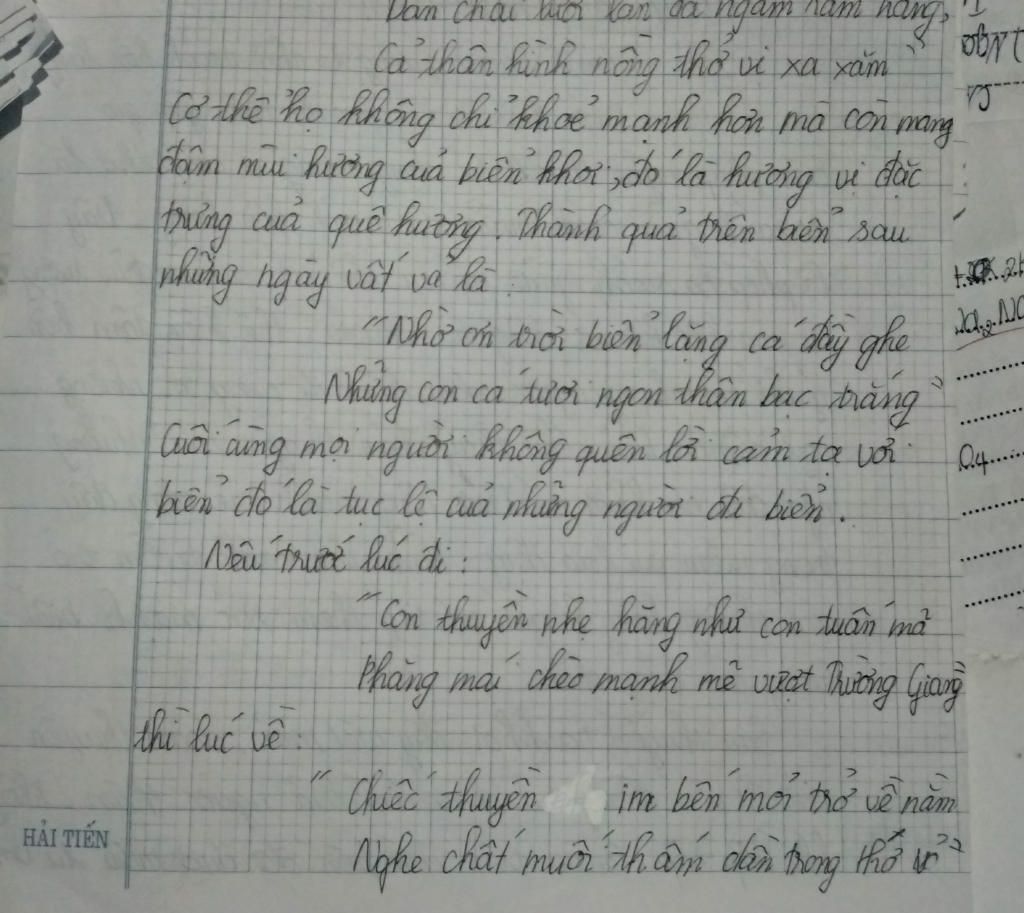 Dân chài lưới làn da ngăm nắng,
Cả thân hình nồng thở vị xa xăm"
Cơ thể họ không chỉ khoẻ mạnh hơn mà còn mang
đậm mùi hương cuả biển khơi, đó là hương vị đặc
trưng cuả quê hương. Thành quả trên biển sau
những ngày vất vả là
"Nhờ ơn trời biển lặng cá đầy ghe
Những con cá tươi ngon thân bạc trắng"
Cuối cùng mọi người không quên lời cảm tạ với
biển đó là tục lệ cuả những người đi biển.
Nếu trước lúc đi:
"Con thuyền nhẹ hăng như con tuấn mã
Phăng mái chèo mạnh mẽ vượt Trường Giang"
thì lúc về:
"Chiếc thuyền im bến mỏi trở về nằm
Nghe chất muối thấm dần trong thớ vỏ"
HẢI TIẾN
Q.4